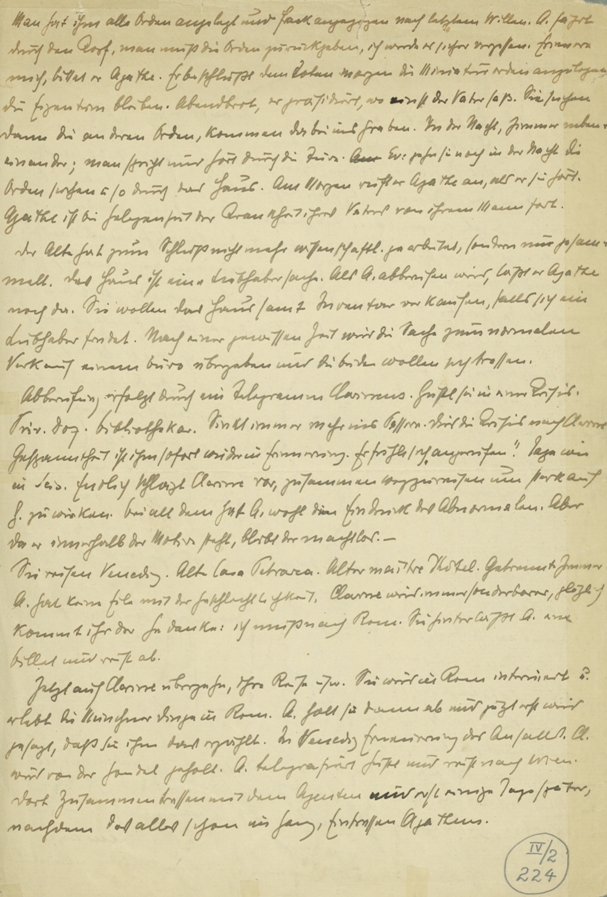 Man hat ihm alle Orden angelegt und Frack angezogen nach letztem Willen. A. fährt
durch das Dorf, man muß die Orden zurückgeben, ich werde es sicher vergessen. Erinnere
mich, bittet er Agathe. Er beschließt dem Toten morgen die Miniaturorden anzulegen,
die Eigentum bleiben. Abendbrot, er präsidiert, wo einst der Vater saß. Sie suchen
dann die anderen Orden, kommen dabei ins Graben. In der Nacht, Zimmer neben-
einander; man spricht und hört durch die Türe. Er: gehn sie noch in der Nacht die
Orden suchen u so durch das Haus. Am Morgen reist er Agathe an, als er sie hört.
Agathe ist bei Gelegenheit der Krankheit ihres Vaters von ihrem Mann fort.
Der Alte hat zum Schluß nicht mehr wissenschaftl. gearbeitet, sondern nur gesam-
melt. Das Haus ist eine Liebhabersache. Als A. abberufen wird, läßt er Agathe
noch da. Sie wollen das Haus samt Inventar verkaufen, falls sich ein
Liebhaber findet. Nach einer gewissen Zeit wird die Sache zum normalen
Verkauf einem Büro übergeben und die beiden wollen sich treffen.
Abberufung erfolgt durch ein Telegramm Clarissens. Histel sei in einer Krisis.
Priv. Doz. Bibliothekar. Sinkt immer mehr ins Wasser. Durch die Krisis nach Clarisse
Gespanntheit ist ihm sofort wieder in Erinnerung. Er fühlt sich „angerufen". Tage wie
in Seis. Endlich schlägt Clarisse vor, zusammen wegzureisen um stark auf
H. zu wirken. Bei all dem hat A. wohl den Eindruck des Abnormalen. Aber
da er innerhalb der Motive steht, bleibt der machtlos. –
Sie reisen Venedig. Alte Casa Petrarca. Alter maître d'hôtel. Getrennte Zimmer
A. hat keine Eile mit der Geschlechtlichkeit. Clarisse wird immer sonderbarer, plötzlich
kommt ihr der Gedanke: ich muß nach Rom. Sie hinterläßt A. ein
Billet und reist ab.
Jetzt auf Clarisse übergehn, ihre Reise usw. Sie wird in Rom interniert u.
erlebt die Münchner Dinge in Rom. A. holt sie dann ab und jetzt erst wird
gesagt, daß sie ihm das erzählt. In Venedig Erneuerung des Anfalls. Cl.
wird von der Gondel geholt. A. telegrafiert und reist nach Wien.
Dort Zusammentreffen mit dem Agenten und erst einige Tage später,
nachdem das alles schon im Gang, Eintreffen Agathens.
IV/2
224